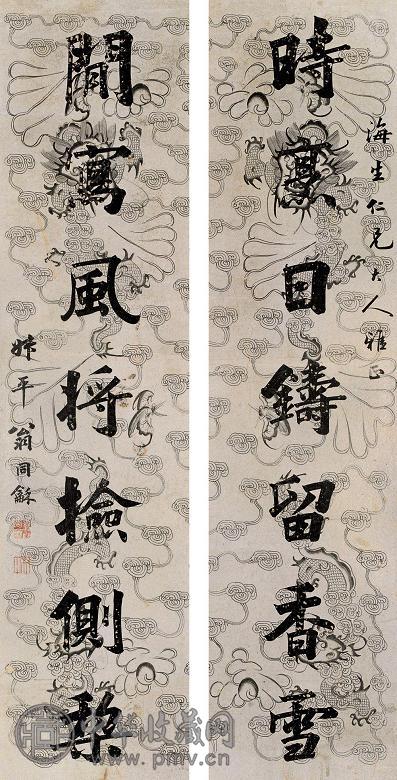 時日鑄留香雪
海生仁兄大人雅正
閒寫風将撿側棃
叔平翁同龢
中华收藏网
www.pmv.cn